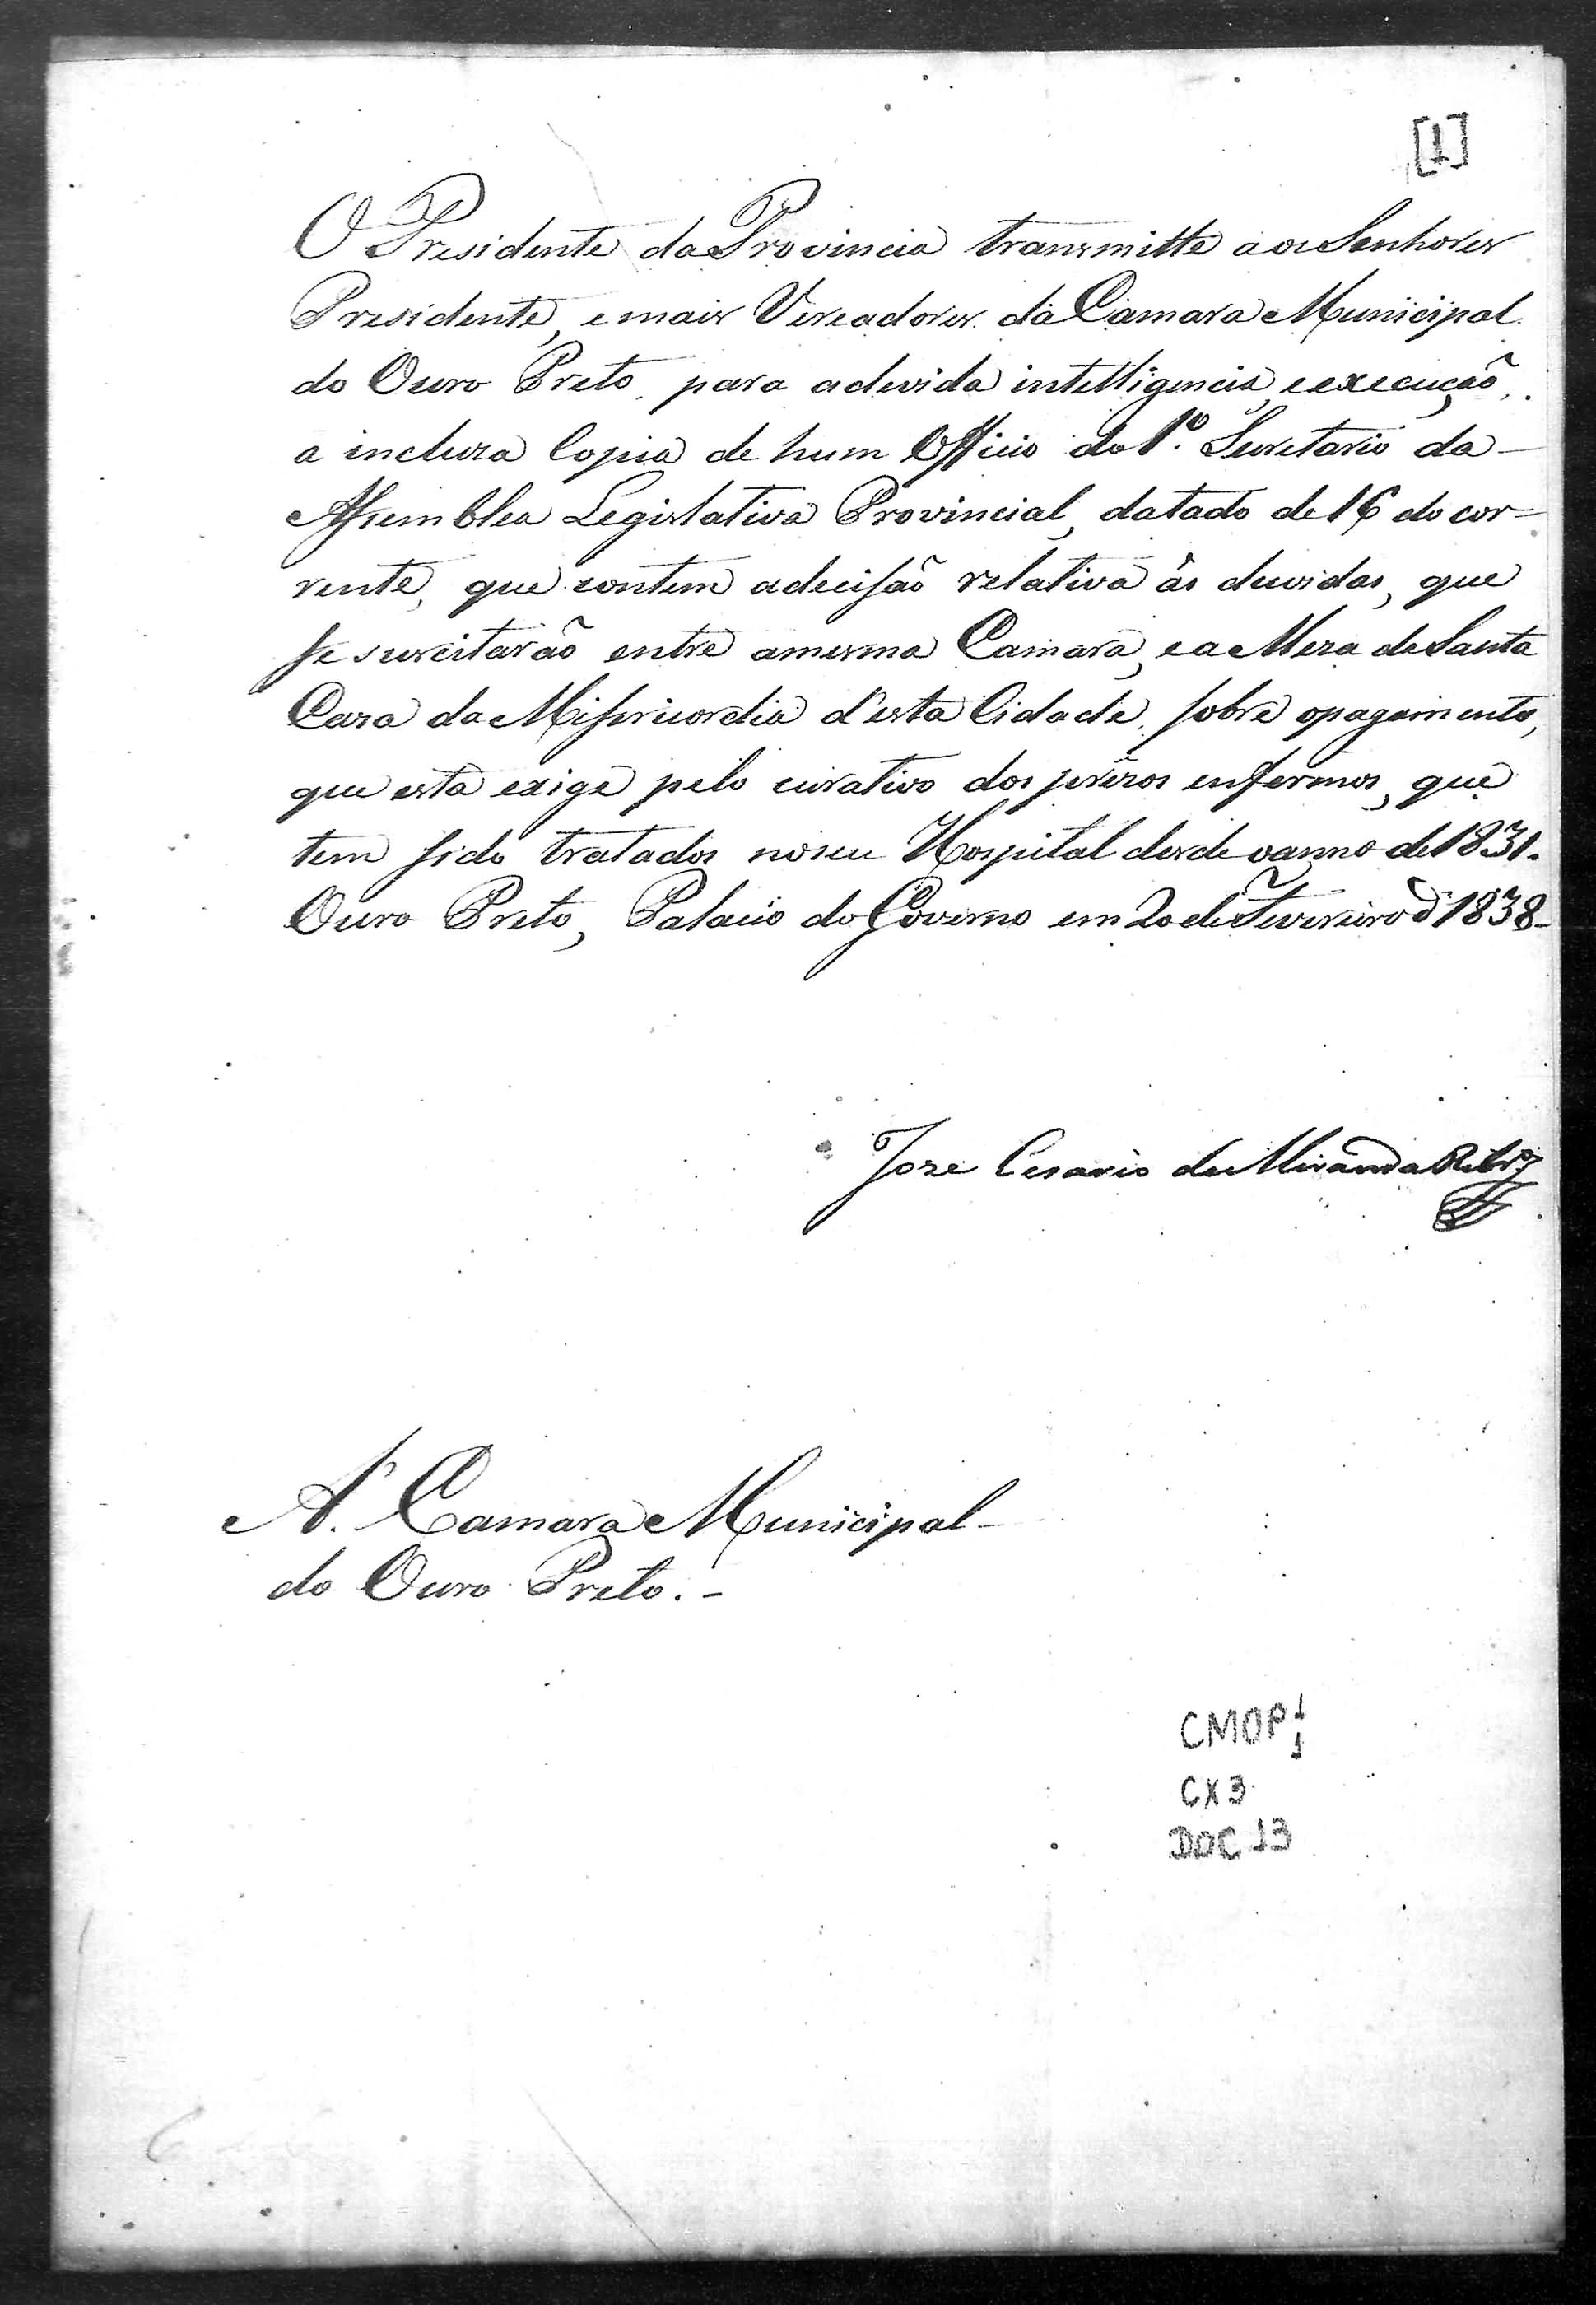 [1]
O Presidente da Provincia transmitte aos Senhores
Presidente, e mais Vereadores da Camara Municipal
do Ouro Preto, para a devida intelligencia, e execução,
a incluza Copia de hum Officio do 1.º Secretario da
Assemblea Legislativa Provincial, datado de 16 do cor=
rente, que contem a decisaõ relativa ás duvidas, que
se suscitaraõ entre a mesma Camara, e a Meza de Santa
Casa da Misericordia d'esta Cidade, sobre o pagamento,
que esta exige pelo curativo dos prezos enfermos, que
tem sido tratados no seu Hospital desde o anno de 1831.
Ouro Preto, Palacio do Governo em 20 de Fevereiro d' 1838-
Jose Cesario de Miranda Ribrº
A' Camara Municipal
do Ouro Preto.-
CMOP 1/1
CX 3
DOC 13